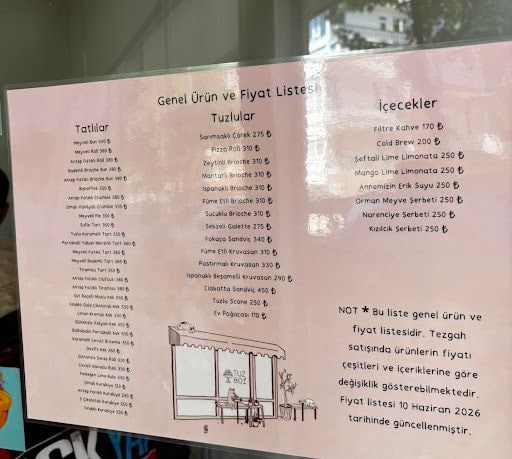 Genel Ürün ve Fiyat Listesi
Tatlılar
Meyveli Bun 330 ₺
Meyveli Roll 360 ₺
Antep Fıstıklı Roll 380 ₺
Bademli Brioche Bun 380 ₺
Antep Fıstıklı Brioche Bun 380 ₺
Banoffee 350 ₺
Antep Fıstıklı Crumble 380 ₺
Elmalı Vanilyalı Crumble 330 ₺
Meyveli Pie 350 ₺
Sufle Tart 350 ₺
Tuzlu Karamelli Tart 360 ₺
Portakallı Yaban Mersinli Tart 360 ₺
Meyveli Fıstıklı Tart 380 ₺
Meyveli Bademli Tart 360 ₺
Tiramisu Tart 350 ₺
Antep Fıstıklı
Antep Fıstıklı Tiramisu 380 ₺
Süt Reçelli Mutlu Kek 330 ₺
Fındıklı Gold Çikolatalı Kek 330 ₺
Limon Kremalı Kek 330 ₺
Glutensiz Kek 350 ₺
Balkabaklı Portakallı Kek 300 ₺
Karamelli Cevizli Brownie 350 ₺
Devil's Kek 360 ₺
Glutensiz Swiss Roll 330 ₺
Cevizli Havuçlu Rulo 330 ₺
Fesleğen Lime Rulo 330 ₺
Elmalı Kurabiye 120 ₺
Antep Fıstıklı Kurabiye 290 ₺
3 Çikolatalı Kurabiye 250 ₺
Fındıklı Kurabiye 250 ₺
Tuzlular
Sarımsaklı Çörek 275 ₺
Pizza Roll 310 ₺
Zeytinli Brioche 310 ₺
Mantarlı Brioche 310 ₺
Ispanaklı Brioche 310 ₺
Füme Etli Brioche 310 ₺
Sucuklu Brioche 310 ₺
Sebzeli Galette 275 ₺
Fokaça Sandviç 340 ₺
Füme Etli Kruvasan 310 ₺
Pastırmalı Kruvasan 330 ₺
Ispanaklı Beşamelli Kruvasan 290 ₺
Ciabatta Sandviç 450 ₺
Tuzlu Scone 250 ₺
Ev Poğaçası 110 ₺
TUZ
BOI
İçecekler
Filtre Kahve 170 ₺
Cold Brew 200 ₺
Şeftali Lime Limonata 250 ₺
Mango Lime Limonata 250 ₺
Annemizin Erik Suyu 250 ₺
Orman Meyve Şerbeti 250 ₺
Narenciye Şerbeti 250 ₺
Kızılcık Şerbeti 250 ₺
NOT * Bu liste genel ürün ve
fiyat listesidir. Tezgah
satışında ürünlerin fiyatı
çeşitleri ve içeriklerine göre
değişiklik gösterebilmektedir.
Fiyat listesi 10 Haziran 2026
tarihinde güncellenmiştir.